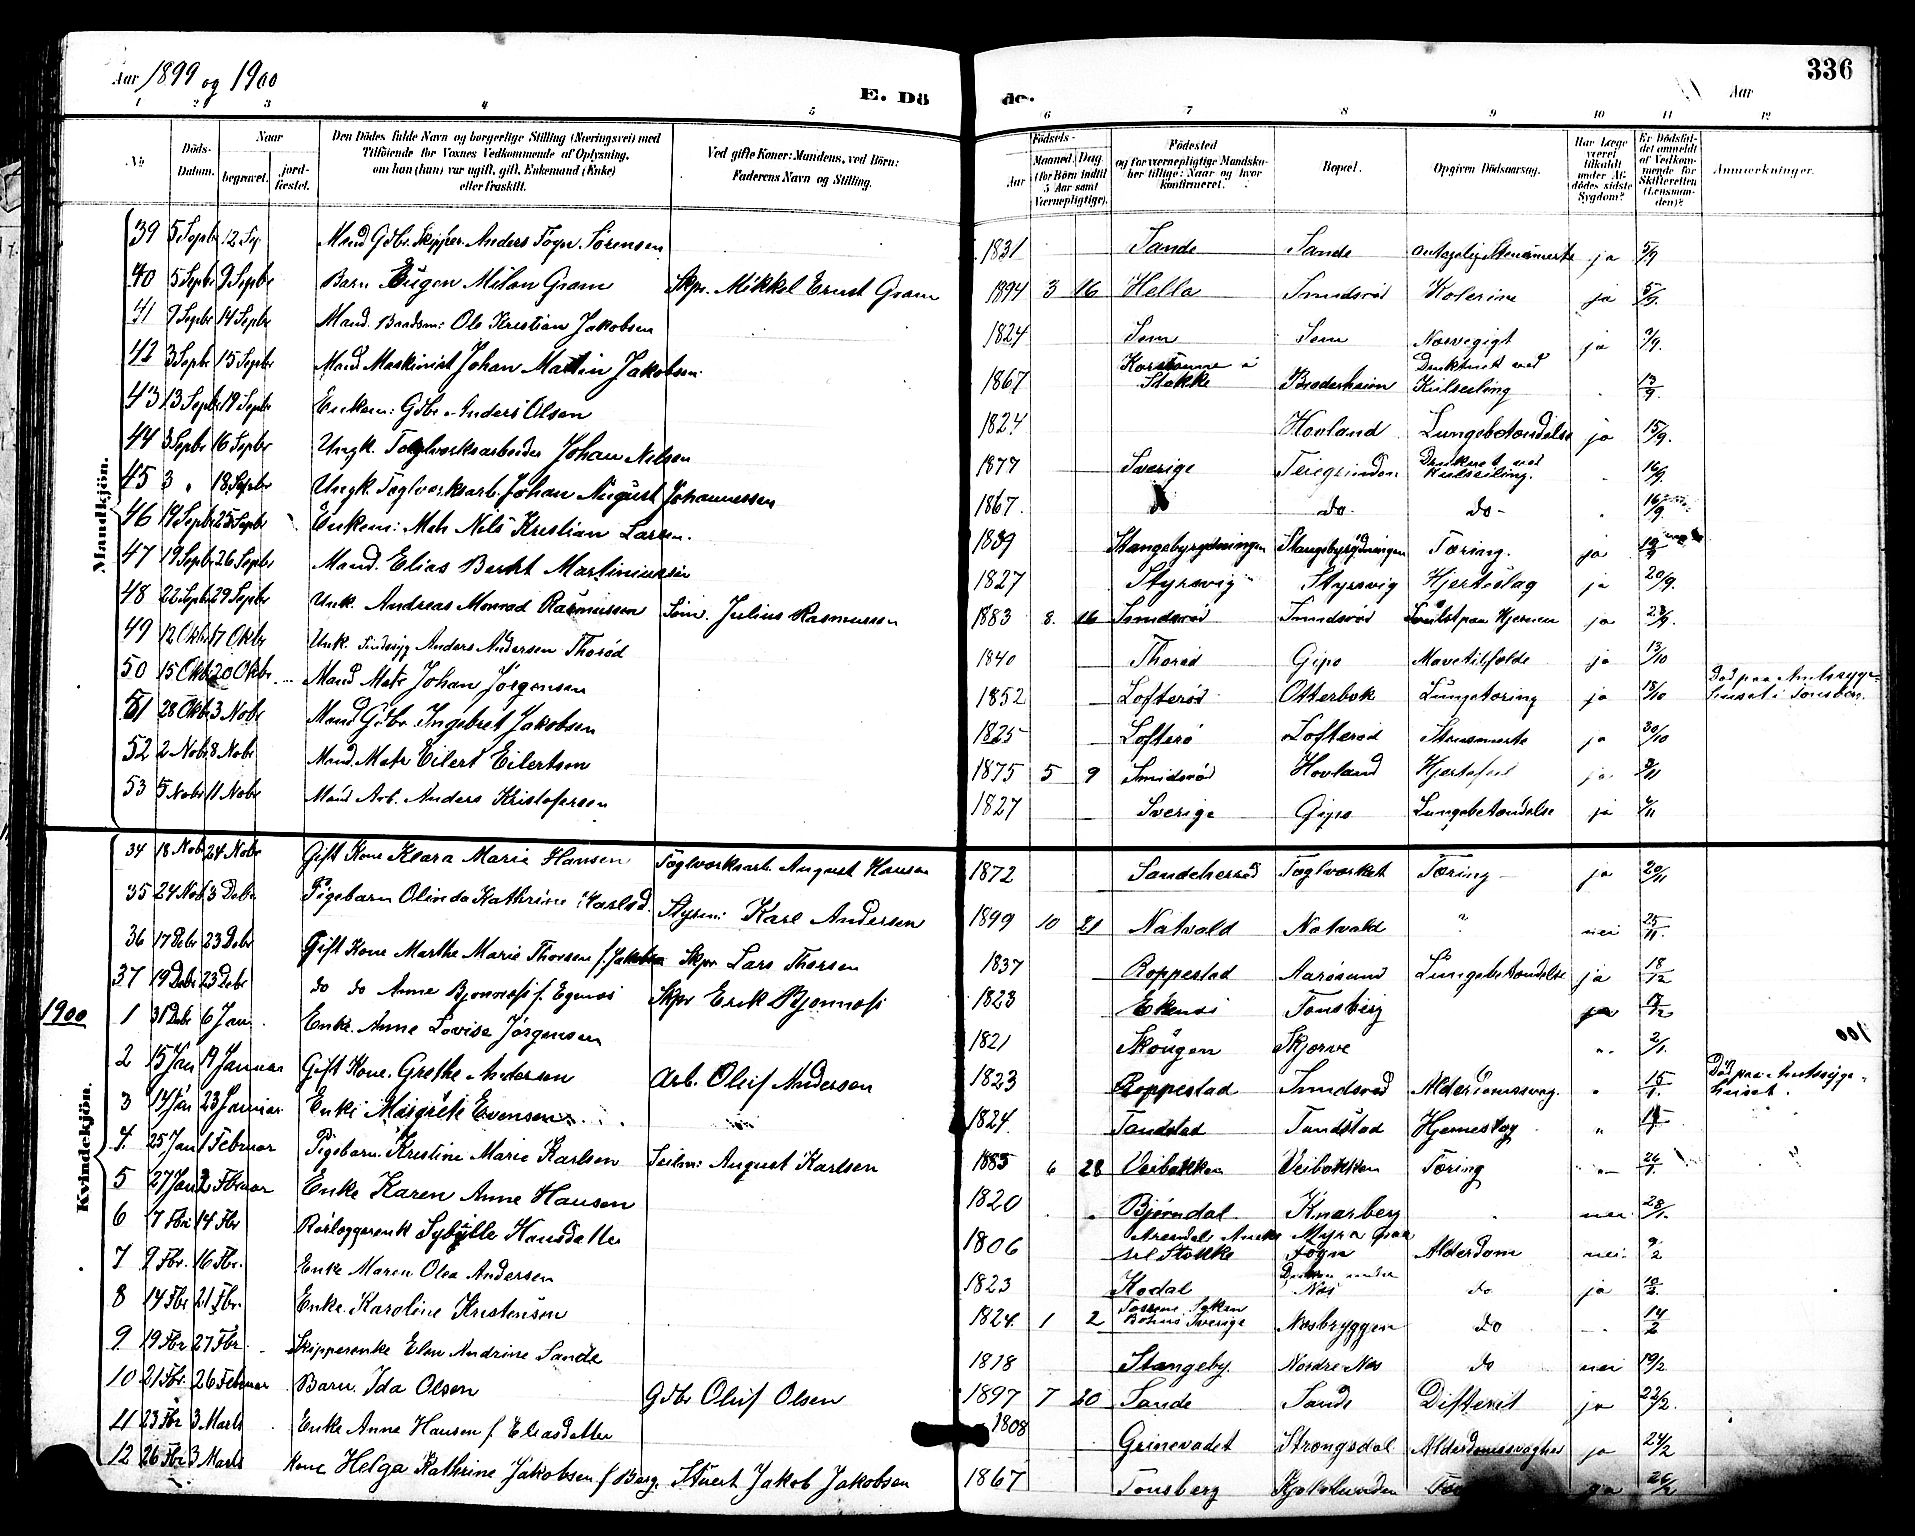 Aar 1899 og 1900
E. Dö
de.
Aar
336
1 2 3 4 5 6 7 8 9 10 11 12
No
Döds-Datum.
Naar
begravet.
jord-fæstet.
Den Dödes fulde Navn og borgerlige Stilling (Næringsvei) med
Tilföiende for Voxnes Vedkommende af Oplysning,
om han (hun) var ugift, gift, Enkemand (Enke)
eller fraskilt.
Ved gifte Koner: Mandens, ved Börn:
Faderens Navn og Stilling.
Födsels-
Aar
Maaned. Dag.
(for Börn indtil
5 Aar samt
Værnepligtige).
Födested
og for værnepligtige Mandsku-
her tillige: Naar og hvor
konfirmeret.
Bopæl.
Opgiven Dödsaarsag.
Har Læge
været
tilkaldt
under Af-
dödes sidste
Sygdom?
Er Dödsfal-
det anmeldt
af Vedkom-
mende for
Skifteretten
(Lensman-
den)?
Anmærkninger.
Mandkjön.
39 5 Septbr 12 Sp Mand Gdbr. Skipper Anders Sørensen 1831 Sande Sande ja 5/9
40 5 Septbr 9 Septbr Barn Eugen Milon Gram Skpr. Mikkel Ernst Gram 1894 3 16 Hella Smidsrød Kolerine ja 5/9
41 9 Septbr 14 Septbr Mand. Baadsm: Ole Kristian Jakobsen 1824 Sem Sem ja 9/9
42 3 Septbr 15 Septbr Mand Maskinist Johan Martin Jakobsen 1867 Stokke Broderheim Druknet ved Kulseiling 13/9
43 13 Septbr 19 Septbr Enkem: Gdbr Anders Olsen 1824 Hovland Lungebetændelse ja 15/9
44 3 Septbr 16 Septbr Ungk. Teglverksarbeider Johan Nilsen 1877 Sverige Druknet ved Kulseiling. 16/9
45 3 " 18 Septbr Ungk. Teglverksarb. Johan August Johannessen 1867 do do do 16/9
46 19 Septbr 25 Septbr Enkem: Matr Nils Kristian Larsen. 1839 Tæring. ja
47 19 Septbr 26 Septbr Mand. Elias Bertht Martiniussen 1827 Styrsvig Styrsvig Hjerteslag ja 20/9
48 22 Septbr 29 Septbr Unk. Andreas Monrad Rasmussen Søm. Julius Rasmussen 1883 8 16 Smidsrød Smidsrød Svulst paa Hjernen ja
49 12 Oktbr 17 Oktbr Unk. Sindssyg Anders Andersen Thorød 1840 Thorød Gipø Mavetilfælde ja 13/10
50 15 Oktbr 20 Oktbr Mand Matr Johan Jørgensen 1852 Lofterød Otterbæk Lungetæring ja 18/10 Død paa Amtssyge-huset i Tønsberg.
51 28 Oktbr 3 Nobr Mand Gdbr Ingebret Jakobsen 1825 Lofterø Lofterød Stensmerte ja 30/10
52 2 Nobr 8 Nobr Mand. Matr Eilert Eilertsen 1875 5 9 Smidsrød Hovland Hjertefeil ja 3/11
53 5 Nobr 11 Nobr Mand Arb. Anders Kristofersen 1827 Sverige Gipø Lungebetændelse ja /11
Kvindekjön.
34 18 Nobr 24 Nobr Gift Kone Klara Marie Hansen Teglverksarb. August Hansen 1872 Sandeherred Teglverket Tæring ja 20/11
35 24 Nobr 3 Debr Pigebarn Olinda Kathrine Karlsd. Styrm: Karl Andersen 1899 10 21 Natvald Natvald ? nei 25/11
36 17 Debr 23 Debr Gift Kone Marthe Marie Thorsen f. Jakobsen Skpr Lars Thorsen 1837 Roppestad Aarøsund Lungebetændelse ja 18/12
37 19 Debr 23 Debr do do Anne Bjønnesi f. Egenæs Skpr Erik Bjønnesi 1823 Ekenes Tønsberg ja
1900
1 31 Debr 6 Jan Enke. Anne Lovise Jørgensen 1821 Skougen Skjerve " 2/1
2 15 Jan 19 Januar Gift Kone. Grethe Andersen Arb. Oluf Andersen 1823 Roppestad Smidsrød Alderdomssvag. " 15/1 Død paa Amtssyge-huset.
3 14 Jan 23 Januar Enke Margrete Evensen 1824 Tandstad Tandstad Hjerneslag "
4 25 Jan 1 Februar Pigebarn Kristine Marie Karlsen Seilm: August Karlsen 1885 6 28 Veibakken Veibakken Tæring " 26/1
5 27 Jan 2 Februar Enke Karen Anne Hansen 1820 Bjørndal Knarberg nei 28/1
6 7 Fbr 14 Fbr Sybille Hansdatter 1806 Stokke Myra Sogn Alderdom nei 9/2
7 9 Fbr. 16 Fbr. Enke Maren Olea Andersen 1823 Kodal Næs do ja 10/2
8 14 Fbr 21 Fbr. Enke. Karoline Kristensen 1824 1 2 Sverige Næsbryggen do 14/2
9 19 Fbr 27 Fbr. Skipperenke Elen Andrine Sande 1818 Stangeby. Nordre Næs do nei 19/2
10 21 Fbr. 26 Februar Barn. Ida Olsen Gdbr Oluf Olsen 1897 7 20 Sande Sande Difterit ja 22/2
11 23 Fbr 3 Marts Enke Anne Hansen f. Eliasdatter 1808 Grinevadet Strengsdal Alderdomssvaghed ja 24/2
12 26 Fbr 3 Marts Kone Helga Kathrine Jakobsen f. Berg. Stuert Jakob Jakobsen 1867 Tønsberg 26/2